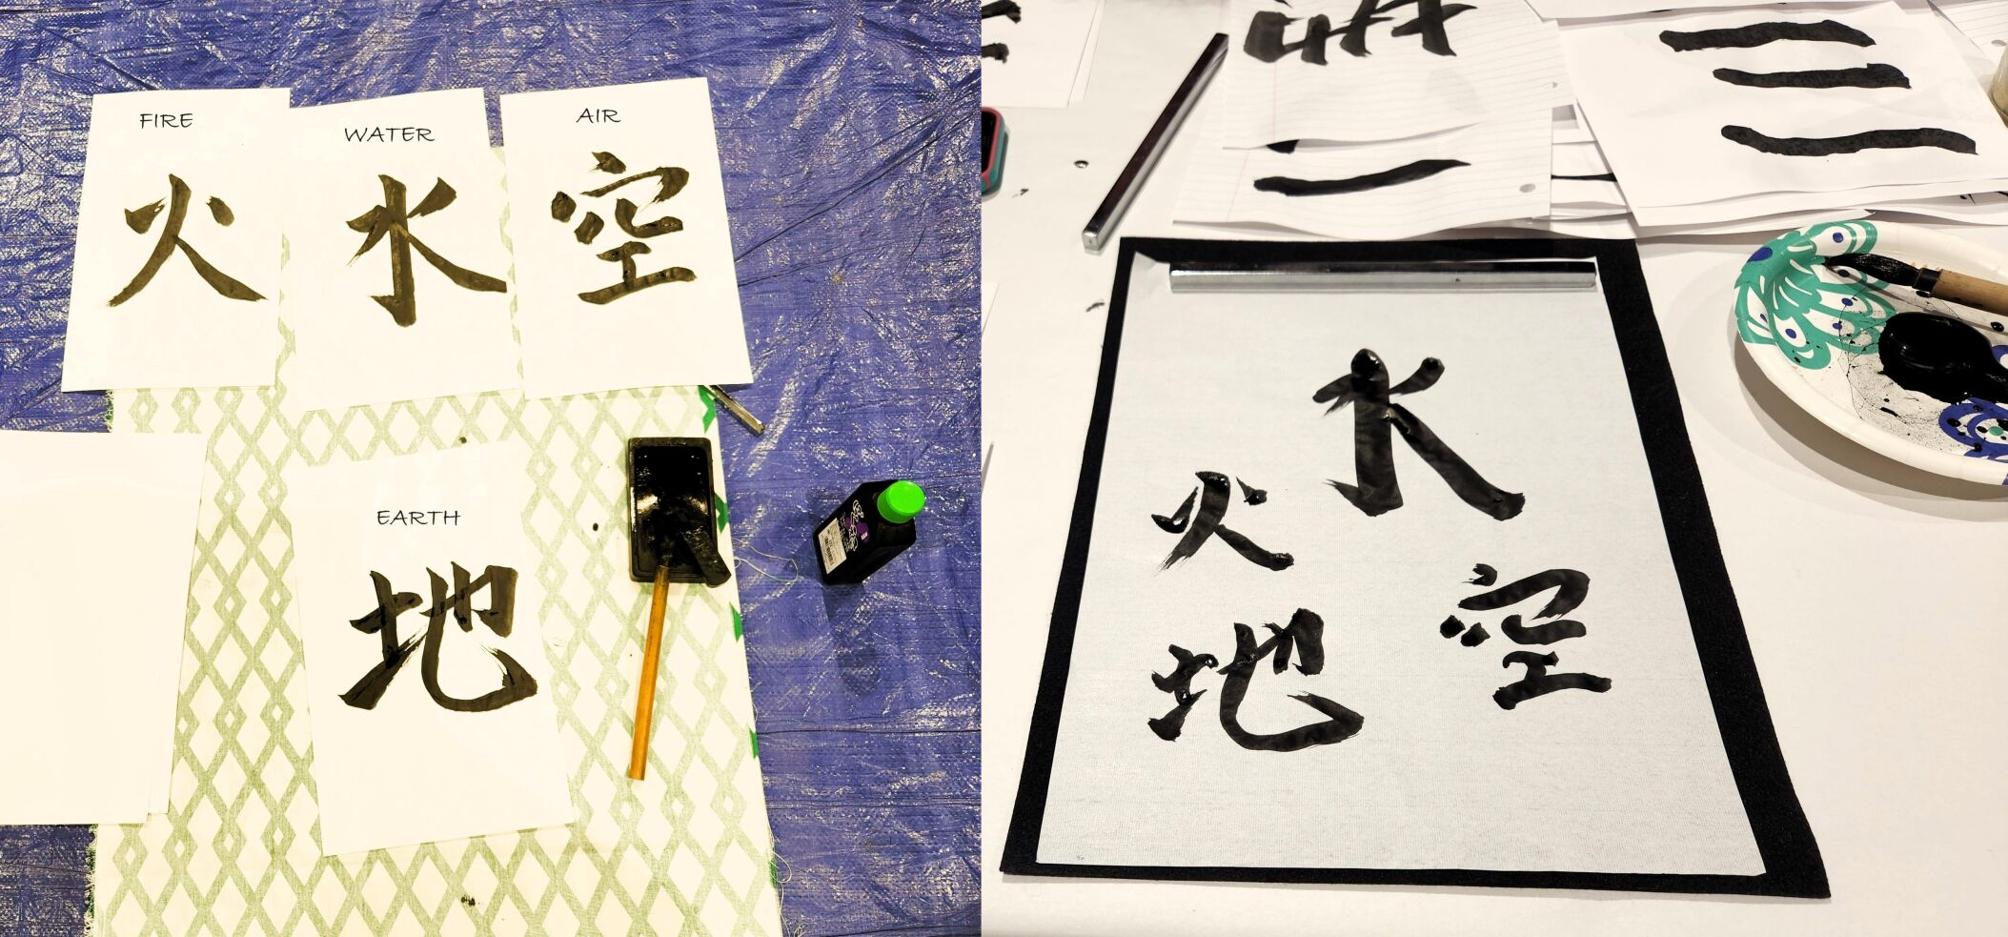 FIRE
火
WATER
水
AIR
空
EARTH
地
一
三
水
火
空
地